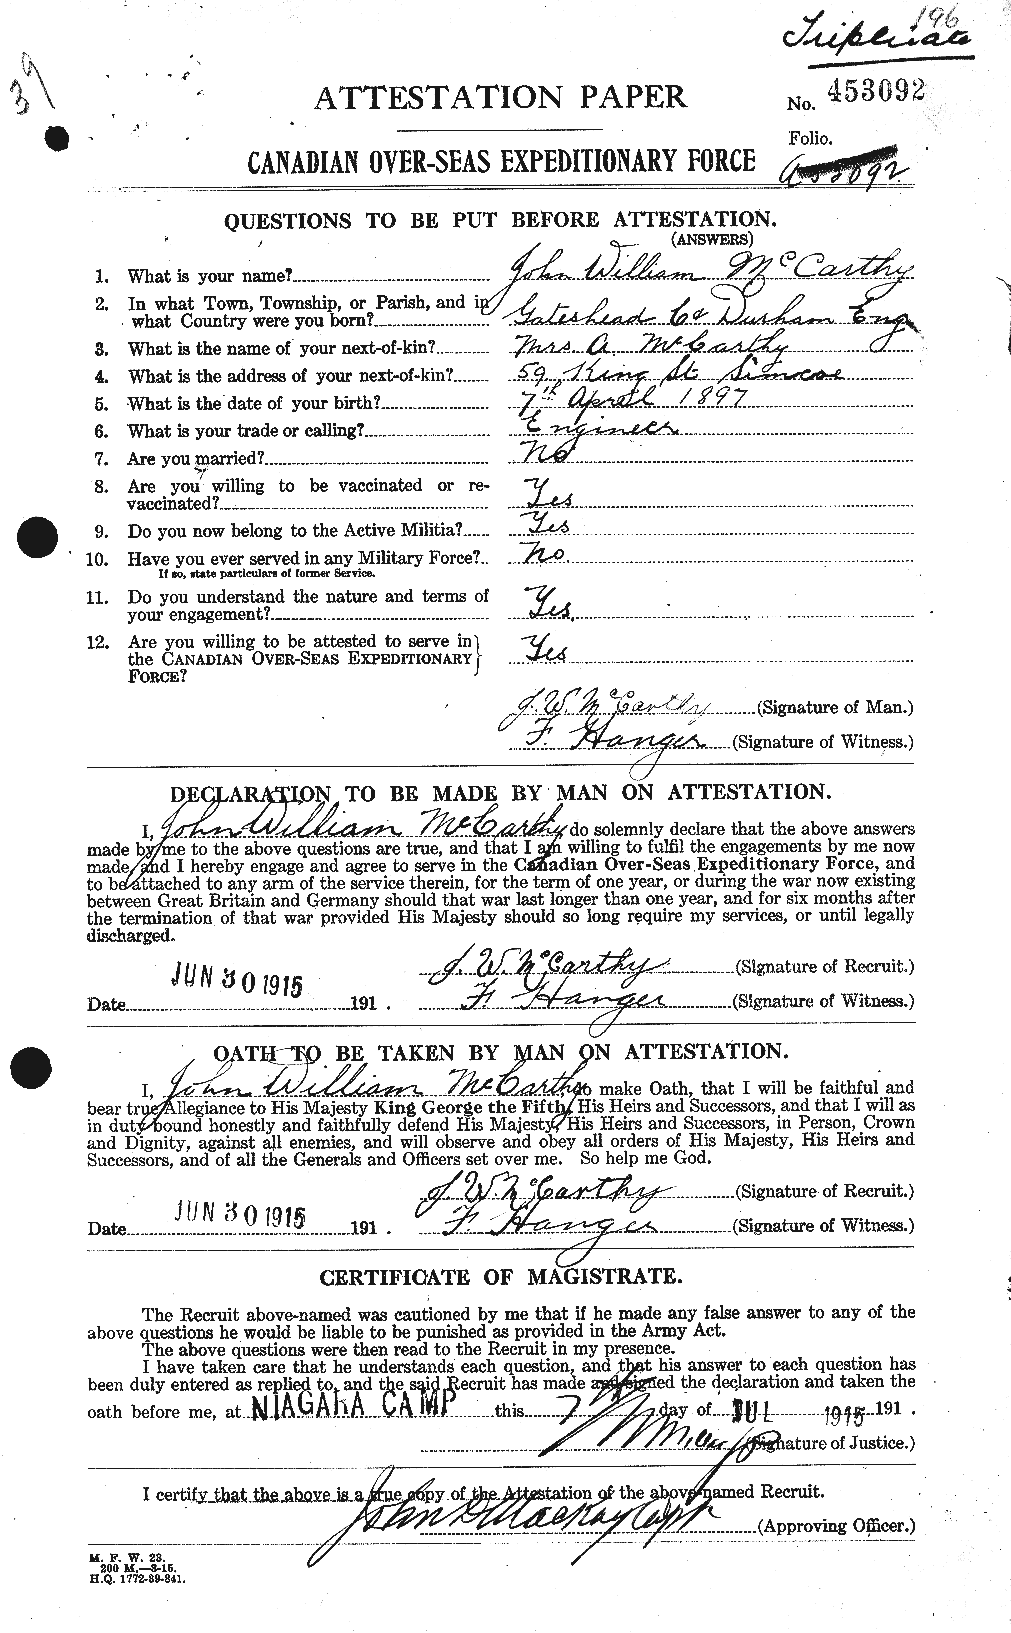 196
Triplicate
39
ATTESTATION PAPER
No. 453092
Folio.
CANADIAN OVER-SEAS EXPEDITIONARY FORCE
QUESTIONS TO BE PUT BEFORE ATTESTATION.
(ANSWERS)
1. What is your name? John William McCarthy
2. In what Town, Township, or Parish, and in
what Country were you born? Gateshead Co Durham Eng
3. What is the name of your next-of-kin? Mrs A. McCarthy
4. What is the address of your next-of-kin? 59, King St. Simcoe
5. What is the date of your birth? 7th April 1897
6. What is your trade or calling? Engineer
7. Are you married? No
8. Are you willing to be vaccinated or re-
vaccinated? Yes
9. Do you now belong to the Active Militia? Yes
10. Have you ever served in any Military Force? No.
If so, state particulars of former Service.
11. Do you understand the nature and terms of
your engagement? Yes.
12. Are you willing to be attested to serve in
the CANADIAN OVER-SEAS EXPEDITIONARY Yes
FORCE?
J. W. McCarthy (Signature of Man.)
F. Hanger (Signature of Witness.)
DECLARATION TO BE MADE BY MAN ON ATTESTATION.
I, John William McCarthy do solemnly declare that the above answers
made by me to the above questions are true, and that I am willing to fulfil the engagements by me now
made, and I hereby engage and agree to serve in the Canadian Over-Seas Expeditionary Force, and
to be attached to any arm of the service therein, for the term of one year, or during the war now existing
between Great Britain and Germany should that war last longer than one year, and for six months after
the termination of that war provided His Majesty should so long require my services, or until legally
discharged.
J. W. McCarthy (Signature of Recruit.)
Date JUN 30 1915 191 . F. Hanger (Signature of Witness.)
OATH TO BE TAKEN BY MAN ON ATTESTATION.
I, John William McCarthy do make Oath, that I will be faithful and
bear true Allegiance to His Majesty King George the Fifth, His Heirs and Successors, and that I will as
in duty bound honestly and faithfully defend His Majesty, His Heirs and Successors, in Person, Crown
and Dignity, against all enemies, and will observe and obey all orders of His Majesty, His Heirs and
Successors, and of all the Generals and Officers set over me. So help me God.
J. W. McCarthy (Signature of Recruit.)
Date JUN 30 1915 191 . F. Hanger (Signature of Witness.)
CERTIFICATE OF MAGISTRATE.
The Recruit above-named was cautioned by me that if he made any false answer to any of the
above questions he would be liable to be punished as provided in the Army Act.
The above questions were then read to the Recruit in my presence.
I have taken care that he understands each question, and that his answer to each question has
been duly entered as replied to, and the said Recruit has made and signed the declaration and taken the
oath before me, at NIAGARA CAMP this 7 day of JUL 1915 191 .
(Signature of Justice.)
I certify that the above is a true copy of the Attestation of the above-named Recruit.
John D Mackay Capt (Approving Officer.)
M. F. W. 23.
200 M.—3-15.
H.Q. 1772-39-841.